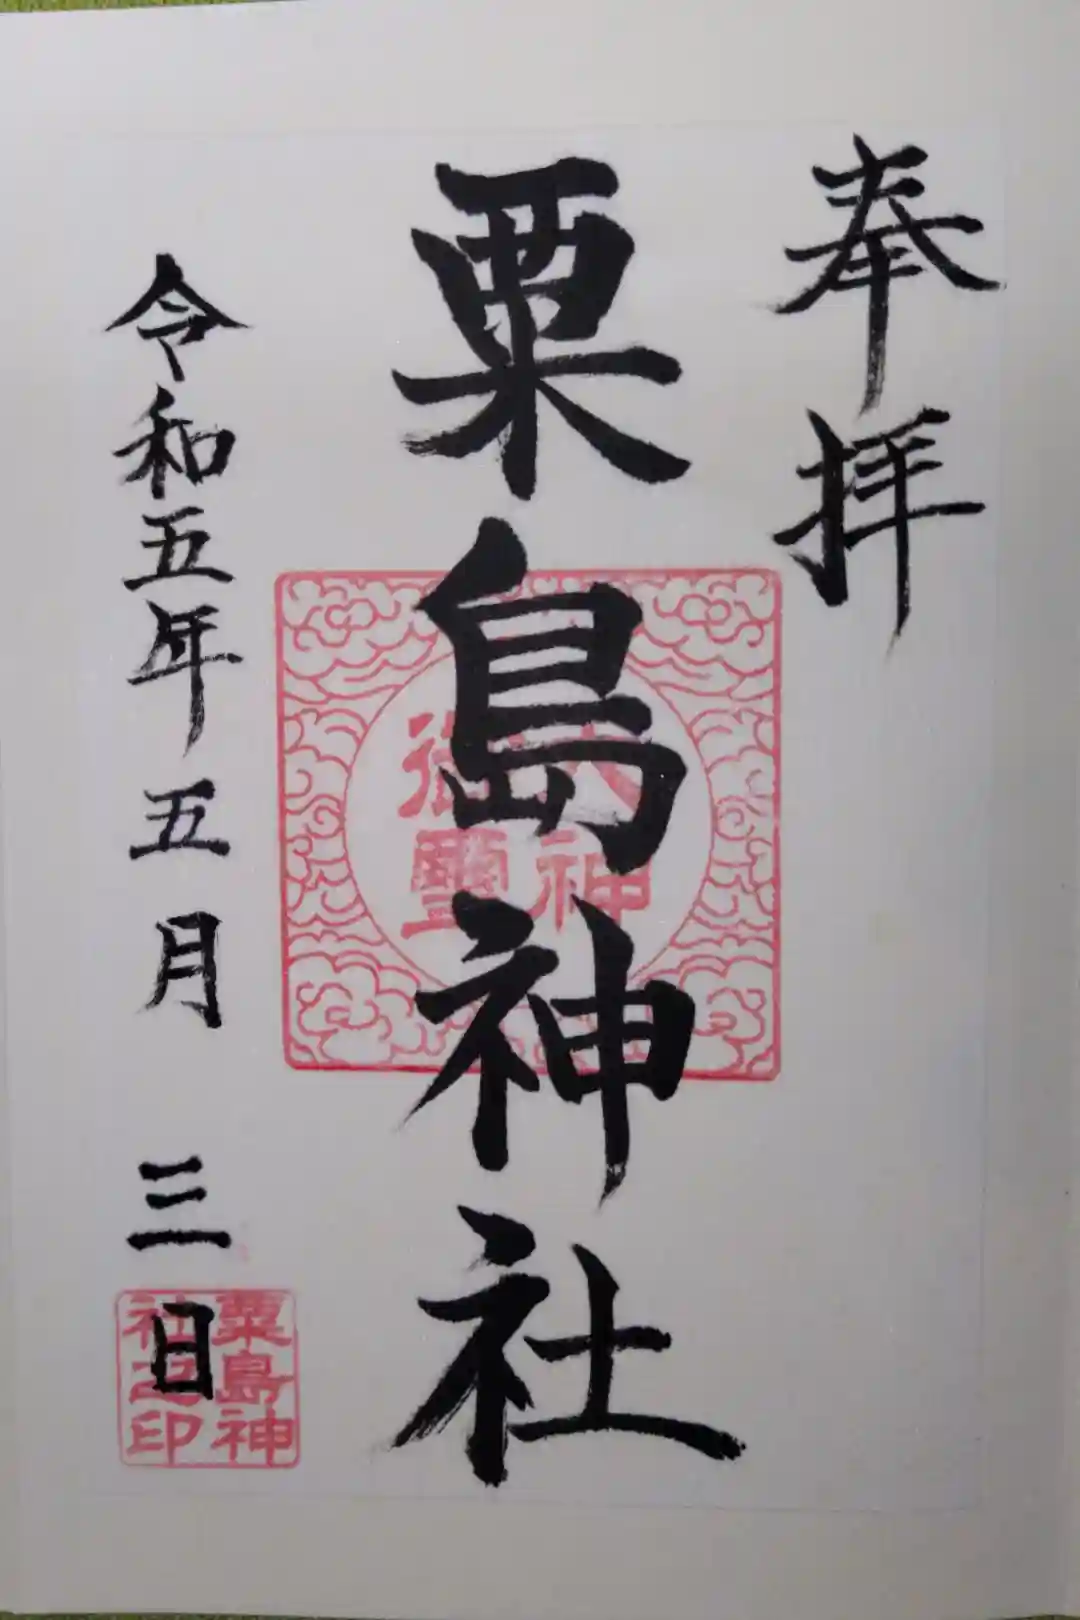 奉拝
粟島神社
大神
御霊
令和五年五月三日
粟島神
社之印